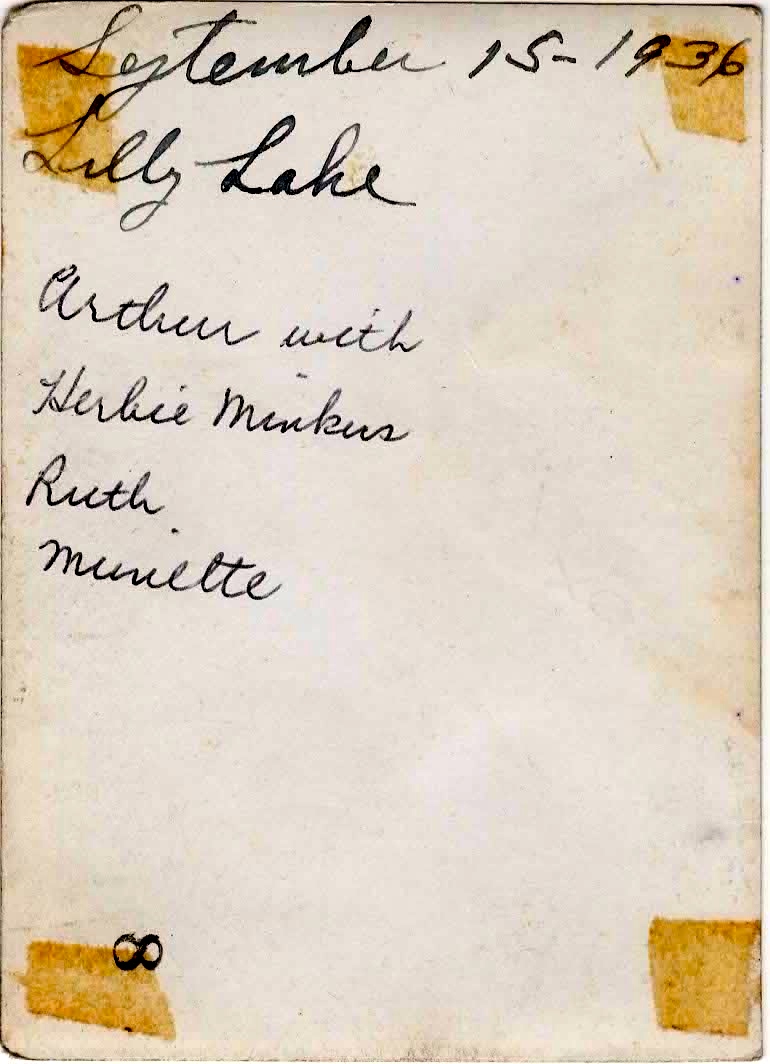 September 15-1936
Lilly Lake
Arthur with
Herbie Minkus
Ruth
Muriette
8